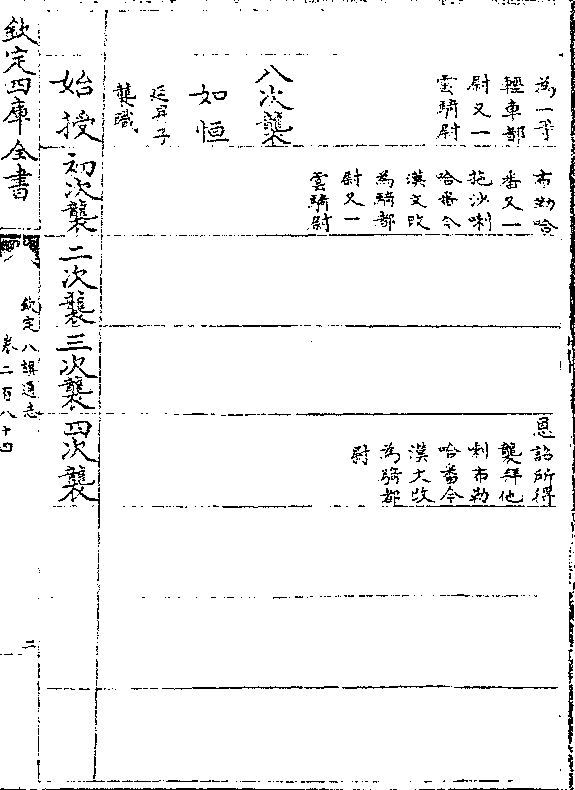 為一等
輕車都
尉又一
雲騎尉
布勒哈
番又一
拖沙喇
哈番今
漢文改
為騎都
尉又一
雲騎尉
恩詔所得
襲拜他
喇布勒
哈番今
漢文改
為騎都
尉
八次襲
如恒
延昇子
襲職
始授
初次襲
二次襲
三次襲
四次襲
欽定四庫全書
欽定八旗通志
卷二百八十四
二